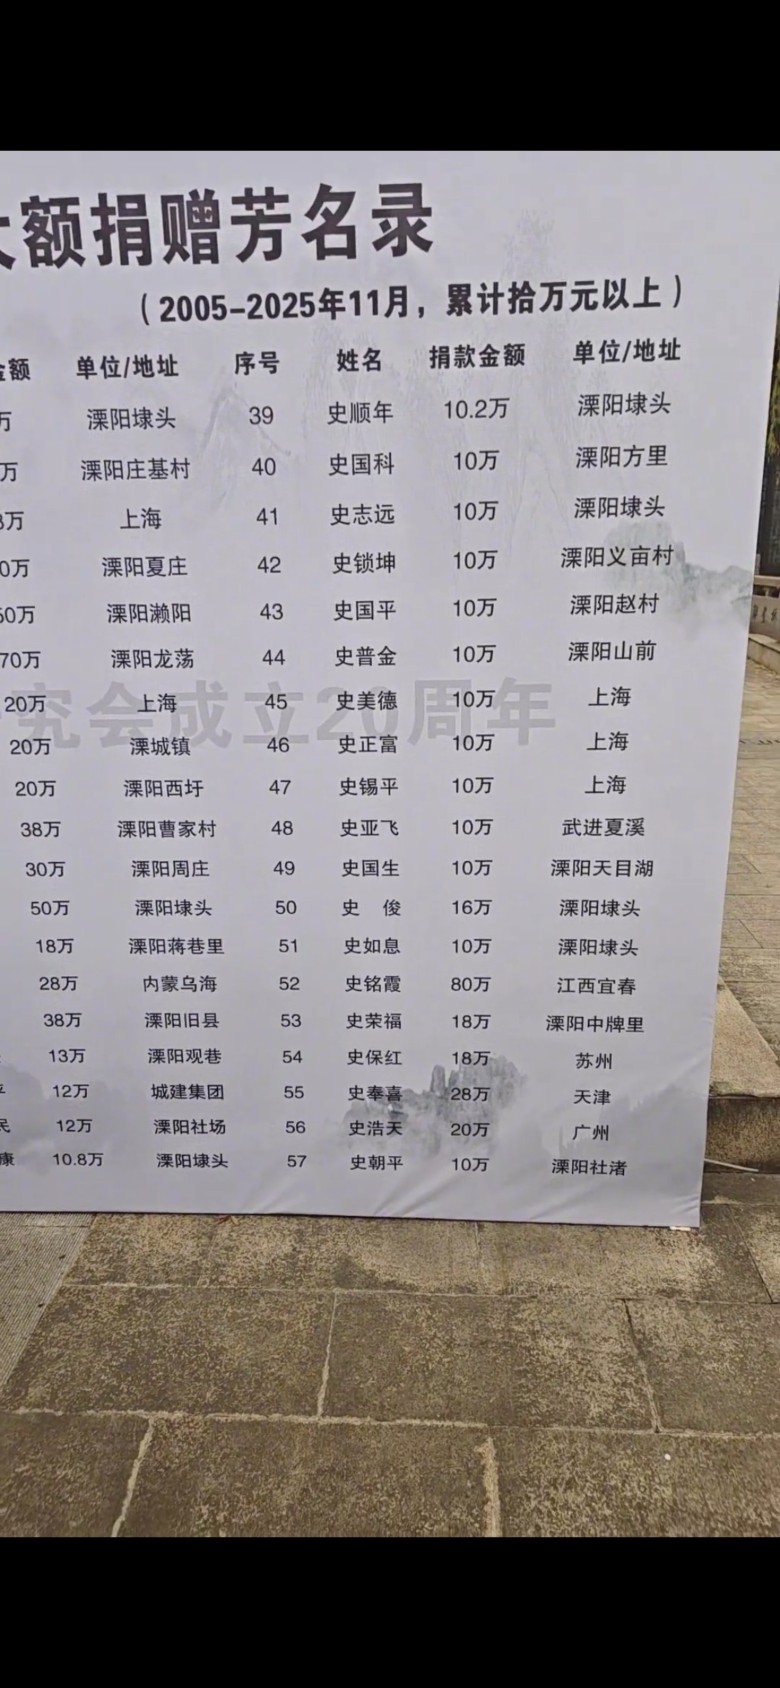 额捐赠芳名录
（2005-2025年11月，累计拾万元以上）
金额 单位/地址 序号 姓名 捐款金额 单位/地址
万 溧阳埭头 39 史顺年 10.2万 溧阳埭头
万 溧阳庄基村 40 史国科 10万 溧阳方里
万 上海 41 史志远 10万 溧阳埭头
0万 溧阳夏庄 42 史锁坤 10万 溧阳义亩村
50万 溧阳濑阳 43 史国平 10万 溧阳赵村
70万 溧阳龙荡 44 史普金 10万 溧阳山前
究会成立20周年
20万 上海 45 史美德 10万 上海
20万 溧城镇 46 史正富 10万 上海
20万 溧阳西圩 47 史锡平 10万 上海
38万 溧阳曹家村 48 史亚飞 10万 武进夏溪
30万 溧阳周庄 49 史国生 10万 溧阳天目湖
50万 溧阳埭头 50 史　俊 16万 溧阳埭头
18万 溧阳蒋巷里 51 史如息 10万 溧阳埭头
28万 内蒙乌海 52 史铭霞 80万 江西宜春
38万 溧阳旧县 53 史荣福 18万 溧阳中牌里
13万 溧阳观巷 54 史保红 18万 苏州
12万 城建集团 55 史奉喜 28万 天津
民 12万 溧阳社场 56 史浩天 20万 广州
康 10.8万 溧阳埭头 57 史朝平 10万 溧阳社渚